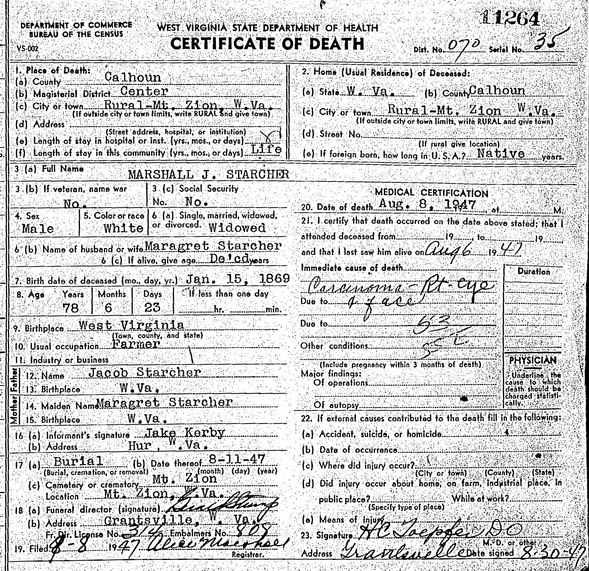 11264
DEPARTMENT OF COMMERCE
BUREAU OF THE CENSUS
VS-002
WEST VIRGINIA STATE DEPARTMENT OF HEALTH
CERTIFICATE OF DEATH
Dist. No. 070 Serial No. 35
1. Place of Death:
(a) County Calhoun
(b) Magisterial District Center
(c) City or town Rural-Mt. Zion, W.Va.
(If outside city or town limits, write RURAL and give town)
(d) Address
(Street address, hospital, or institution)
(e) Length of stay in hospital or inst. (yrs., mos., or days)
(f) Length of stay in this community (yrs., mos., or days) Life
2. Home (Usual Residence) of Deceased:
(a) State W. Va. (b) County Calhoun
(c) City or town Rural-Mt. Zion W.Va.
(If outside city or town limits, write RURAL and give town)
(d) Street No.
(If rural give location)
(e) If foreign born, how long in U. S. A.? Native years.
3 (a) Full Name MARSHALL J. STARCHER
3 (b) If veteran, name war
No.
3 (c) Social Security
No. No.
4. Sex
Male
5. Color or race
White
6 (a) Single, married, widowed,
or divorced. Widowed
6 (b) Name of husband or wife Maragret Starcher
6 (c) If alive, give age De'cd years
7. Birth date of deceased (mo., day, yr.) Jan. 15, 1869
8. Age Years Months Days If less than one day
78 6 23 hr. min.
9. Birthplace West Virginia
(Town, county, and state)
10. Usual occupation Farmer
11. Industry or business
Father
12. Name Jacob Starcher
13. Birthplace W.Va.
Mother
14. Maiden Name Maragret Starcher
15. Birthplace W.Va.
16 (a) Informant's signature Jake Kerby
(b) Address Hur, W.Va.
17 (a) Burial (b) Date thereof 8-11-47
(Burial, cremation, or removal) (month) (day) (year)
(c) Cemetery or crematory Mt. Zion
Location Mt. Zion, W.Va.
18 (a) Funeral director (signature)
(b) Address Grantsville, W. Va.
Fr. Dir. License No. Embalmers No. 808
19. Filed 8-8 1947 Alice Marshall
Registrar.
MEDICAL CERTIFICATION
20. Date of death Aug. 8, 1947 at M.
21. I certify that death occurred on the date above stated; that I
attended deceased from 19 to 19
and that I last saw him alive on Aug 6 1947
Immediate cause of death
Duration
Carcinoma - Rt-eye
Due to & face
Due to 53
Other conditions
(Include pregnancy within 3 months of death)
Major findings:
Of operations
Of autopsy
PHYSICIAN
Underline the
cause to which
death should be
charged statisti-
cally.
22. If external causes contributed to the death fill in the following:
(a) Accident, suicide, or homicide
(b) Date of occurrence
(c) Where did injury occur?
(City or town) (County) (State)
(d) Did injury occur about home, on farm, industrial place, in
public place? While at work?
(Specify type of place)
(e) Means of injury
23. Signature H C Toepfer DO
M. D. or other
Address Grantsville Date signed 8-30-47